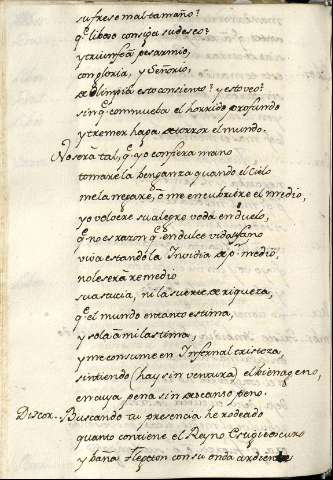 sufrese mal tamaño?
q̃ libeo consiga su deseo?
y triunfe à pesar mio,
con gloria, y Señorio,
de Olimpia esto consiente? y esto veo?
sin q̃ commueba el horrido profundo
y tremer haga de terror el mundo.
No serà tal, q̃ yo con fiera mano
tomare la benganza quando el Cielo
me la negare, ò me encubriere el medio,
yo volvere su alegre voda en duelo,
q̃ no es razon q̃ en dulce vida ufano
viva estando la Invidia de p.r medio,
no le serà remedio
su astucia, ni la suerte de riqueza,
q̃ el mundo en tanto estima,
y sola à mi lastima,
y me consume en Infernal tristeza,
sintiendo (hay sin ventura) el bien ageno,
en cuya pena sin descanso peno.
Discor. Buscando tu presencia he rodeado
quanto contiene el Reyno Estigio escuro
y baña Flegeton con su onda ardiente